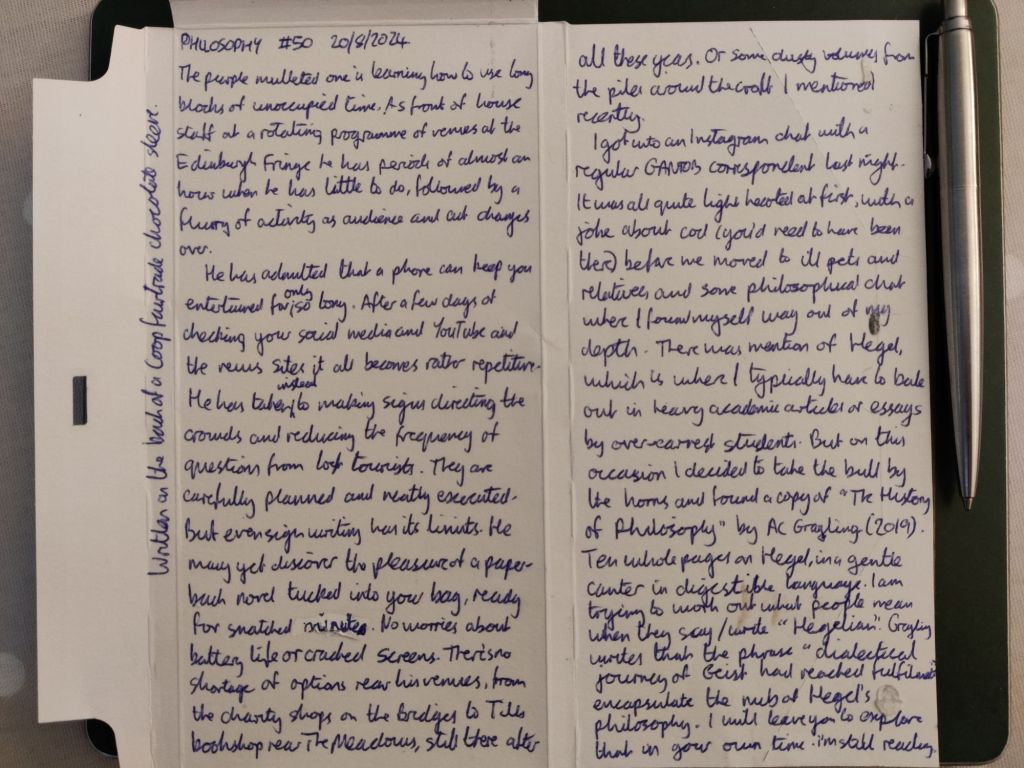 Written on the back of a Coop fairtrade chocolate sleeve.
PHILOSOPHY #50 20/8/2024
The purple mulleted one is learning how to use long
blocks of unoccupied time. As front of house
staff at a rotating programme of venues at the
Edinburgh Fringe he has periods of almost an
hour when he has little to do, followed by a
flurry of activity as audience and act changes
over.
He has admitted that a phone can keep you
entertained for only so long. After a few days of
checking your social media and YouTube and
the news sites it all becomes rather repetitive.
He has taken instead to making signs directing the
crowds and reducing the frequency of
questions from lost tourists. They are
carefully planned and neatly executed.
But even sign writing has its limits. He
may yet discover the pleasure of a paper-
back novel tucked into your bag, ready
for snatched minutes. No worries about
battery life or cracked screens. There is no
shortage of options near his venues, from
the charity shops on the bridges to Tills
bookshop near The Meadows, still there after
all these years. Or some dusty volumes from
the piles around the croft I mentioned
recently.
I got into an Instagram chat with a
regular GANTOB correspondent last night.
It was all quite light hearted at first, with a
joke about cod (you'd need to have been
there) before we moved to ill pets and
relatives and some philosophical chat
where I found myself way out of my
depth. There was mention of Hegel,
which is where I typically have to bale
out in heavy academic articles or essays
by over-earnest students. But on this
occasion I decided to take the bull by
the horns and found a copy of "The History
of Philosophy" by AC Grayling (2019).
Ten whole pages on Hegel, in a gentle
canter in digestible language. I am
trying to work out what people mean
when they say/write "Hegelian". Grayling
writes that the phrase "dialectical
journey of Geist had reached fulfilment
encapsulate the nub of Hegel's
philosophy. I will leave you to explore
that in your own time. I'm still reading.